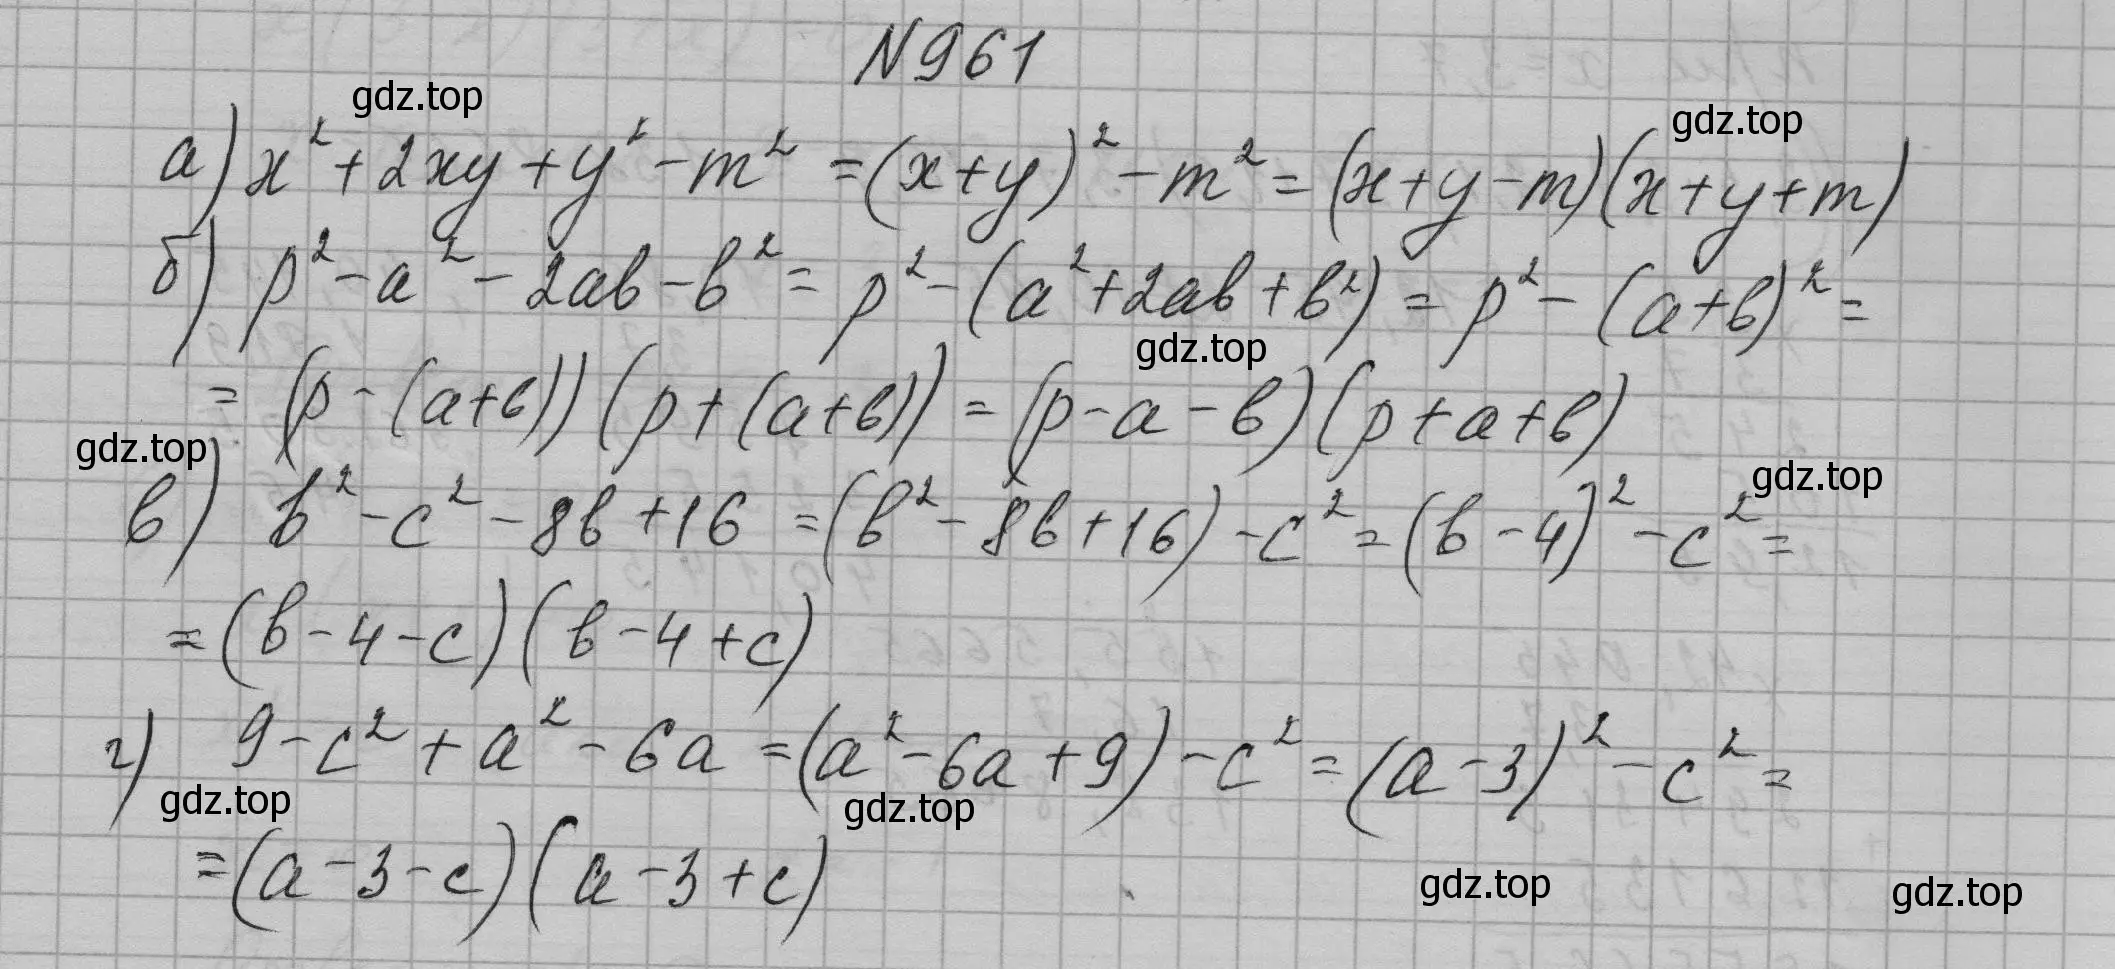 N961
gdz.top
gdz.top
а) x² + 2xy + y² - m² = (x+y)² - m² = (x+y-m)(x+y+m)
б) p² - a² - 2ab - b² = p² - (a² + 2ab + b²) = p² - (a+b)² =
gdz.top
= (p - (a+b)) (p + (a+b)) = (p - a - b) (p + a + b)
gdz.top
gdz.top
в) b² - c² - 8b + 16 = (b² - 8b + 16) - c² = (b - 4)² - c² =
= (b - 4 - c) (b - 4 + c)
г) 9 - c² + a² - 6a = (a² - 6a + 9) - c² = (a - 3)² - c² =
gdz.top
gdz.top
= (a - 3 - c) (a - 3 + c)
gdz.top
gdz.top